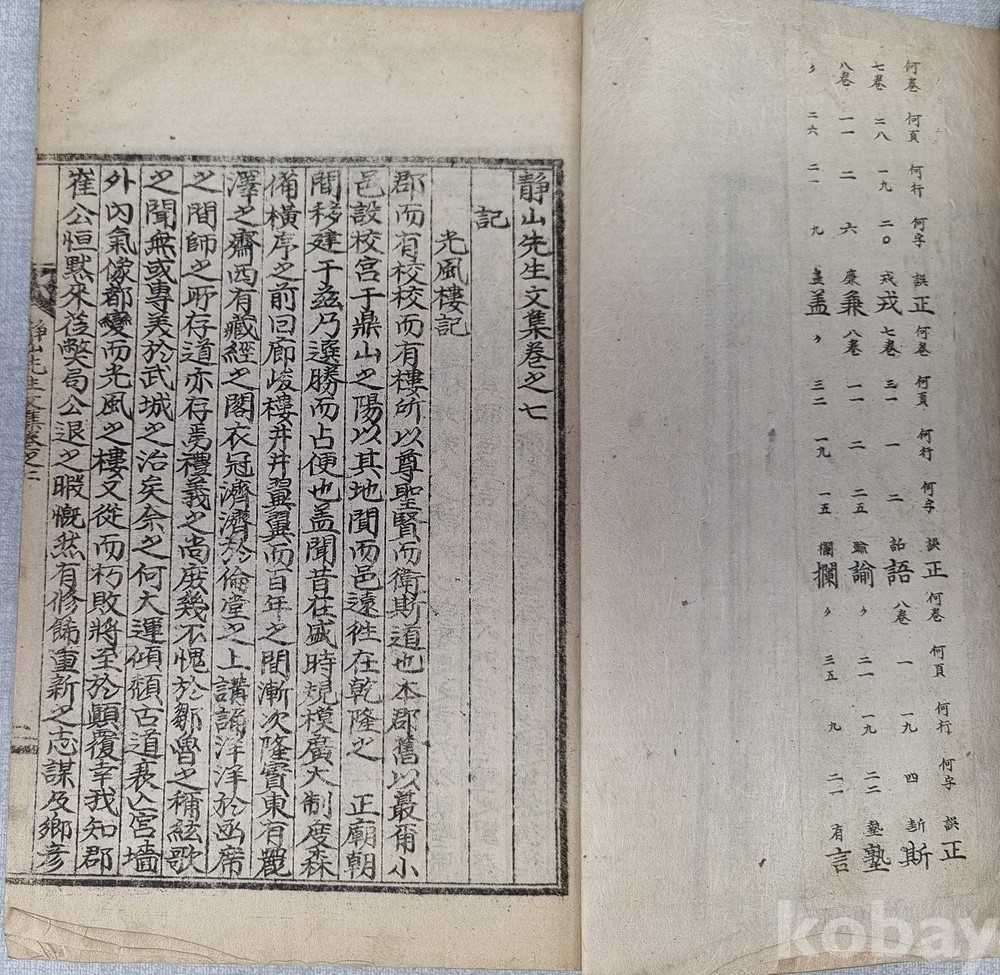 何卷 何頁 何行 何字 誤 正 何卷 何頁 何行 何字 誤 正 何卷 何頁 何行 何字 誤 正
七卷 二八 一九 二〇 戎 戎 七卷 三一 一 二 詀 語 八卷 一 一九 四 新 斯
八卷 一一 二 六 廉 兼 八卷 一一 二 二五 踰 諭 〃 二一 一九 二二 塾
〃 二六 二一 九 盖 〃 三二 一九 一五 欄 攔 〃 三五 九 二一 有 言
靜山先生文集卷之七
記
光風樓記
郡而有校校而有樓所以尊聖賢而衛斯道也本郡舊以最爾小
邑設校宮于鼎山之陽以其地閒而邑遠徃在乾隆之 正廟朝
間移建于玆乃選勝而占便也盖聞昔在盛時規模廣大制度森
備橫序之前回廊峻樓井井翼翼而百年之間漸次隆實東有麗
澤之齋西有藏經之閣衣冠濟濟於倫堂之上講誦洋洋於函席
之間師之所存道亦存焉禮義之尚庶幾不愧於鄒魯之稱絃歌
之聞無或專美於武城之治矣奈之何大運傾頹古道衰亾宮墻
外內氣像都變而光風之樓又從而朽敗將至於顚覆幸我知郡
崔公恒默來莅獘局公退之暇慨然有修餙重新之志謀及鄉彦
靜山先生文集卷之七
kobay